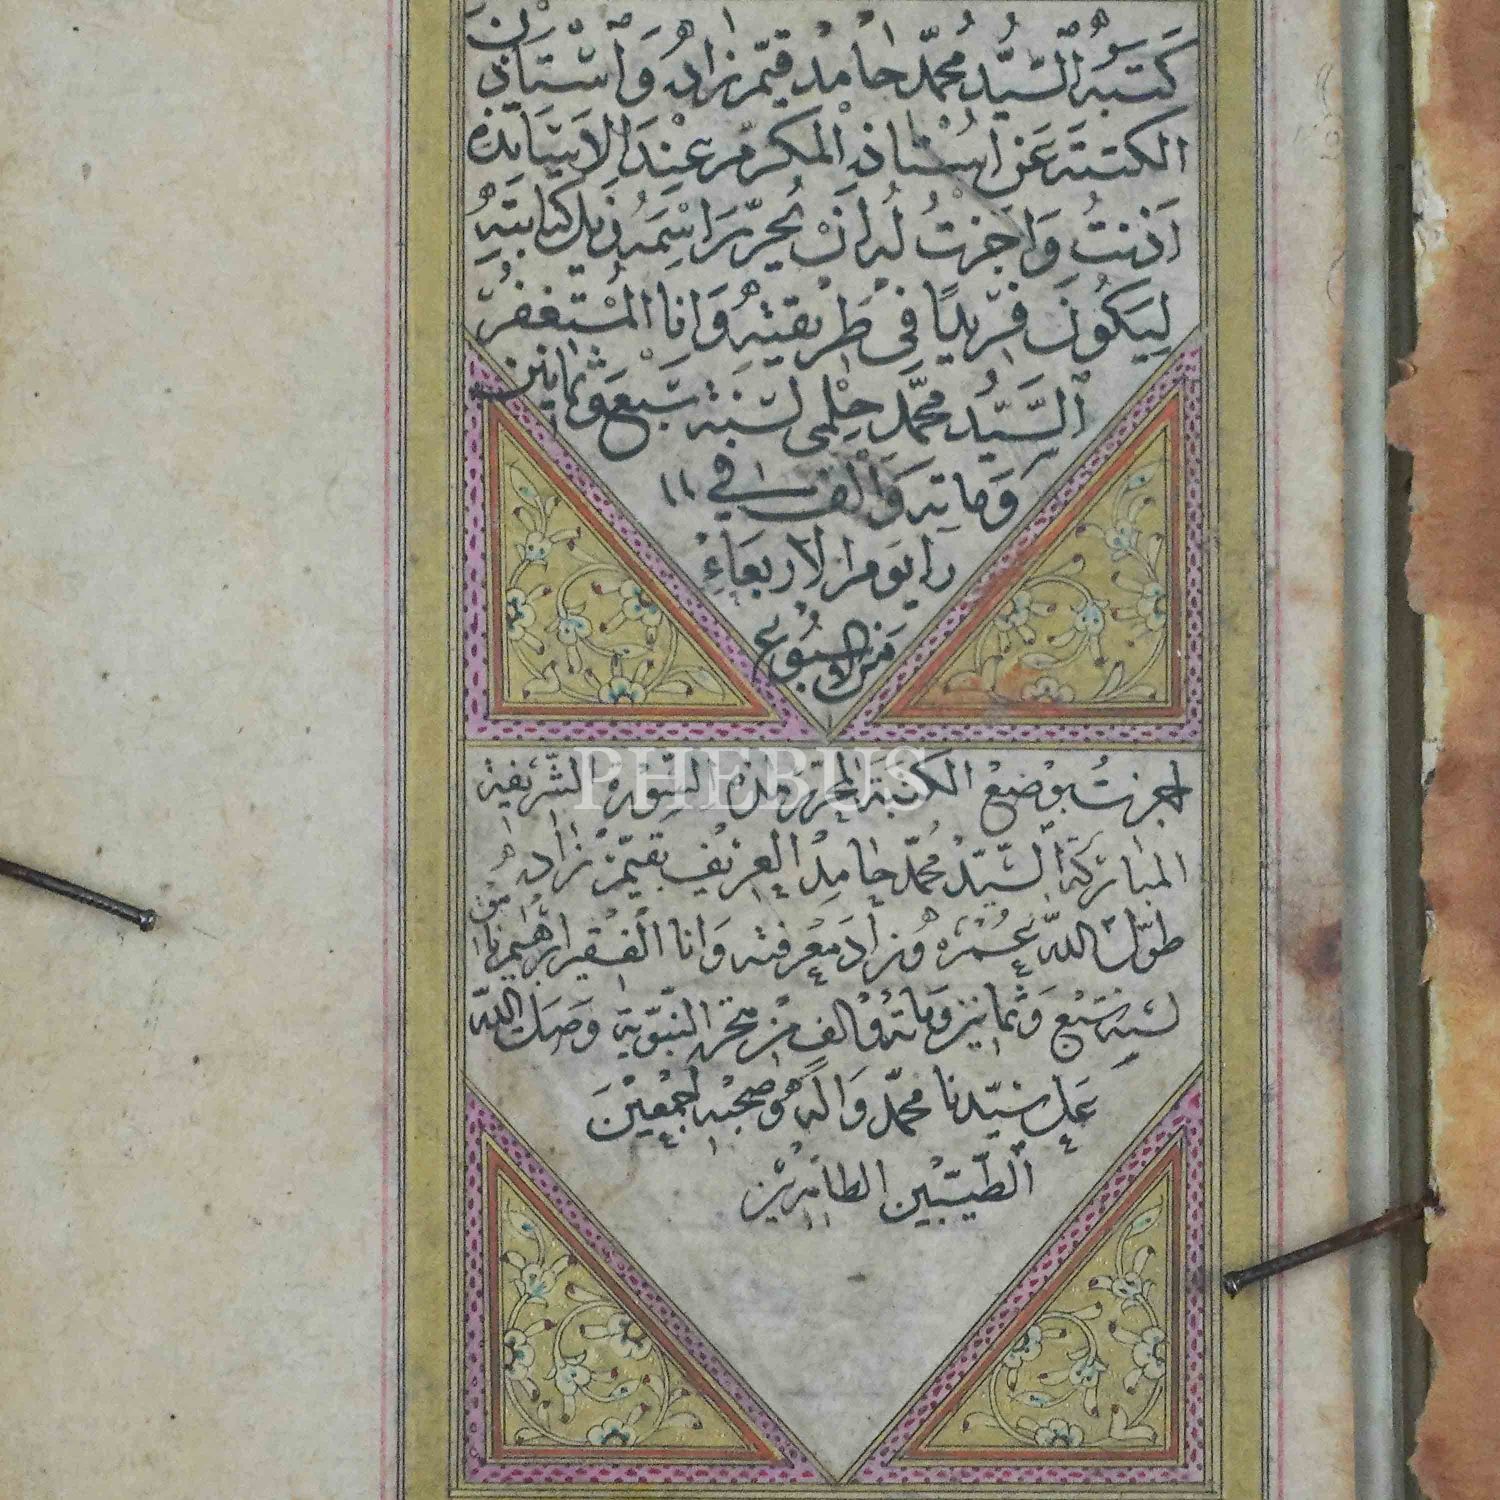 كتبه السيد محمد حامد قيم زاده واستأذن
الكتبة عن استاذه المكرم عند الاساتذة
اذنت واجزت له ان يحرر اسمه ذيل كتابته
ليكون فريدا في طريقته وانا المستغفر
السيد محمد حلمي لسنة سبع وثمانين
ومائه والف في ١١
را يوم الاربعاء
من
PHEBUS
اجزت بوضع الكتبة لمحرر هذه السورة الشريفة
المباركة السيد محمد حامد العريف بقيم زاده
طول الله عمره وزاد معرفته وانا الفقير ابراهيم
لسنة سبع وثمانين ومائة والف من هجرة النبوية وصلى الله
على سيدنا محمد واله وصحبه اجمعين
الطيبين الطاهرين